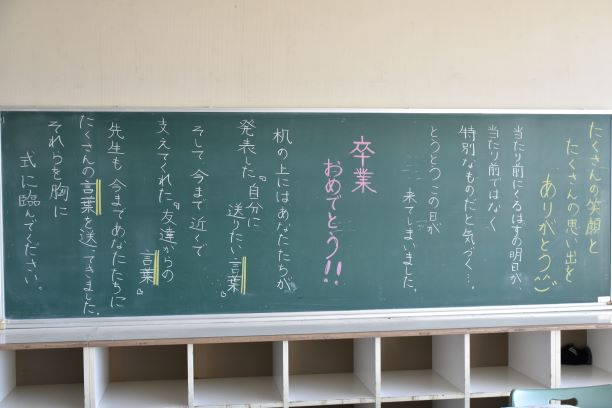 たくさんの笑顔と
たくさんの思い出を
ありがとう
当たり前にくるはずの明日が
当たり前ではなく
特別なものだと気づく…。
とうとうこの日が
来てしまいました。
卒業
おめでとう!!
机の上にはあなたたちが
発表した『自分に
送りたい言葉』
そして今まで近くで
支えてくれた『友達からの
言葉』
先生も今まであなたたちに
たくさんの言葉を送ってきました。
それらを胸に
式に臨んでください。